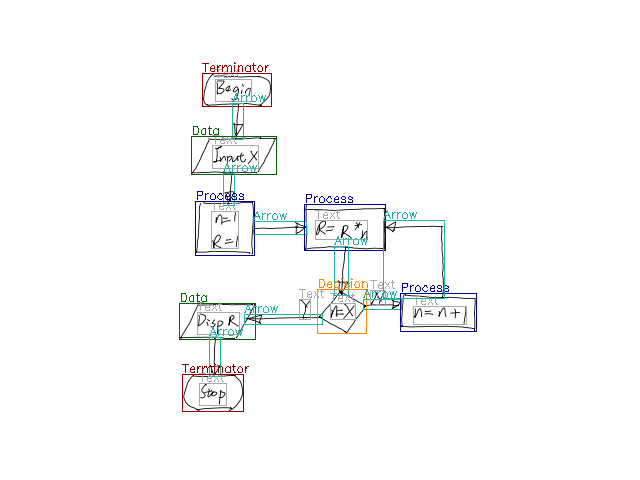 Terminator
Text
Begin
Arrow
Data
Text
Input X
Arrow
Process
Text
n=1
R=1
Arrow
Process
Text
R= R*n
Arrow
Arrow
Decision
Text
n=X
Text
Y
Arrow
Text
N
Arrow
Process
Text
n=n+1
Data
Text
Disp R
Arrow
Terminator
Text
Stop